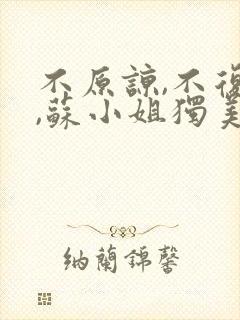 不原諒,不復
,蘇小姐獨美
納蘭錦馨